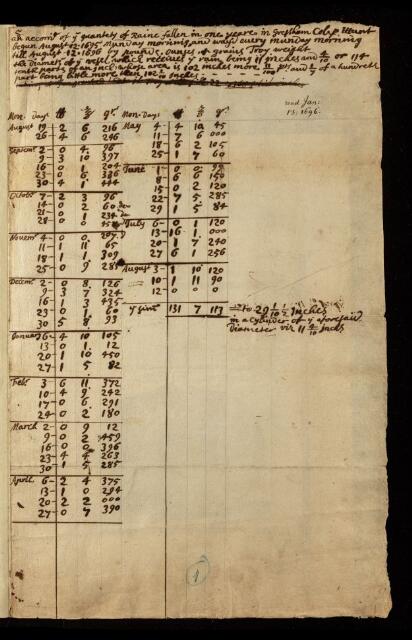 An account of yᵉ quantety of Raine fallen in one yeare in Gresham Coledg
began August 12 1695 Munday morning and wayd every munday morning
till August 12 1696 by pounds, ounses & grains Troy weight
the Diameter of yᵉ vessel which received yᵉ rain being 11 inches and 4/10 or 114
tenth parts of an inch whose area is 102 inches more
part being little more then 102 inches
read Jan:
13. 1696.
Mon. Days ℔ ℥ gr.
August 19 2 6 216
26 4 6 246
Septem: 2 0 4 96
9 3 10 397
16 0 1 204
23 0 6 386
30 4 1 444
Octobr 7 2 3 96
14 0 2 60
21 0 1 234
28 0 0 45
Novem: 4 0 0 207
11 1 11 65
18 1 1 309
25 0 9 285
Decem: 2 0 8 126
9 3 7 324
16 1 3 435
23 0 1 60
30 5 8 93
6 4 10 105
13 0 1 12
20 1 10 450
27 1 5 82
Feb: 3 6 11 372
10 4 9 242
17 0 6 291
24 0 2 180
March 2 0 9 12
9 0 2 459
16 0 0 396
23 4 4 263
30 1 5 285
April 6 2 4 375
13 1 0 294
20 2 2 000
27 0 7 390
Mon. Days ℔ ℥ gr.
May 4 4 10 45
11 7 6 000
18 6 2 105
25 1 7 60
June 1 0 0 99
8 6 6 150
15 0 2 120
22 7 5 285
29 1 5 84
July 6 0 1 120
13 16 1 000
20 1 7 240
27 6 1 256
August 3 1 10 120
10 1 11 90
12 0 0 0
yᵉ sum 131 7 113 = to 29 Inches
in a Cylinder of yᵉ aforesaid
Diameter viz 11 4/10 inches
1